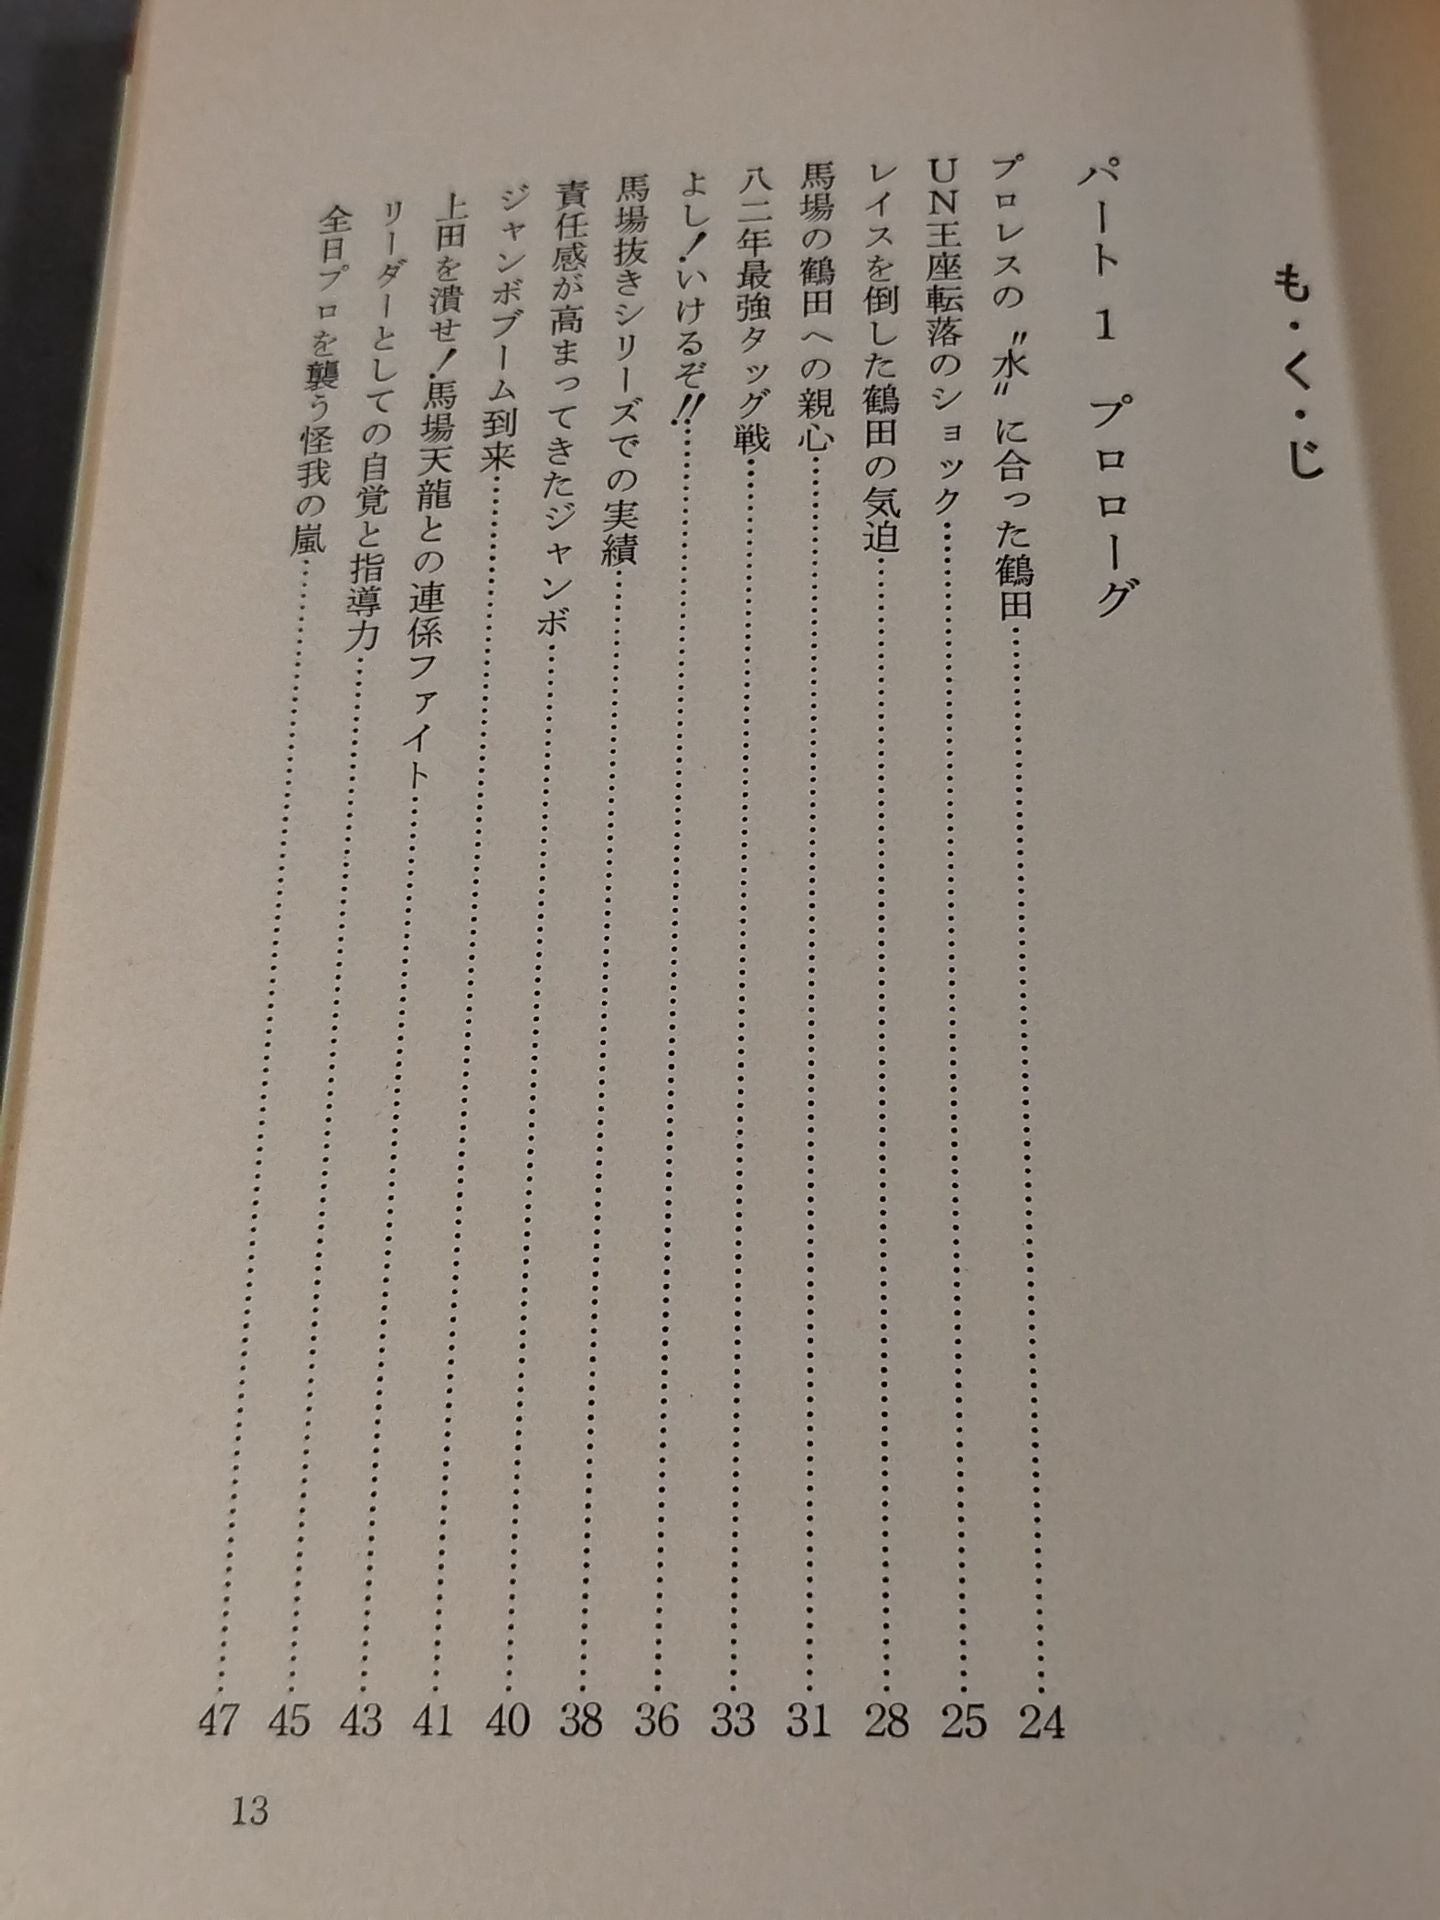 も・く・じ
パート1 プロローグ
プロレスの〝水〟に合った鶴田……24
UN王座転落のショック……25
レイスを倒した鶴田の気迫……28
馬場の鶴田への親心……31
八二年最強タッグ戦……33
よし！いけるぞ!!……36
馬場抜きシリーズでの実績……38
責任感が高まってきたジャンボ……40
ジャンボブーム到来……41
上田を潰せ！馬場天龍との連係ファイト……43
リーダーとしての自覚と指導力……45
全日プロを襲う怪我の嵐……47
13